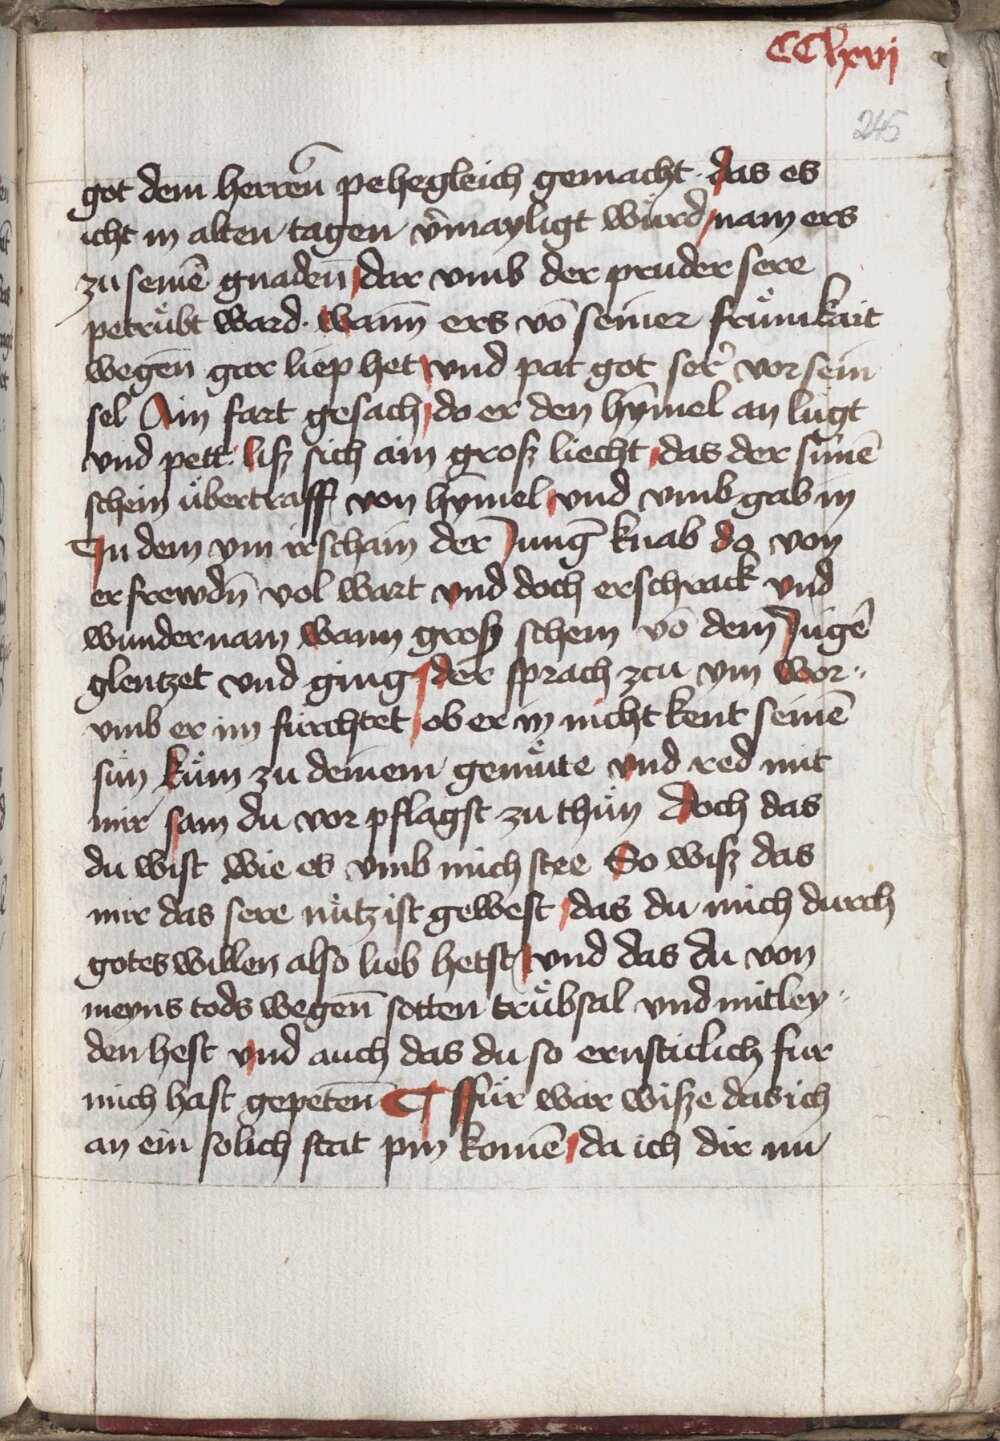 CClxvi
245
got dem herreñ pehegleich gemacht · das es
icht in alten tagen v̄mayligt wu̇rd / nam ers
zu seinē gnadeñ / dar vmb der pruder sere
petru̇bt ward · wañ ers vō seiner fru̇mkait
wegeñ gar liep het / vnd pat got ser̄ vor sein
sel Ain fart gesach / do er den hȳmel an lugt
vnd pett · liſz sich ain groſz liecht / das der sūnē
schein u̇bertraff von hȳmel / vnd vmb gab in
In dem ym irschain der Junḡ knab do von
er frewdñ vol wart vnd doch erschrack vnd
wundernam wann groſz schein vō dem Jūgē
glentzet vnd ging / der sprach zcu ym wor··
vmb er im furchtet / ob er in nicht kent seinē
su̇n ku̇m zu deinem gemu̇te vnd red mit
mir sam du vor pflagst zu thu̇n Doch das
du wist wie es vmb mich stee So wiſz das
mir das sere nu̇tz ist gewest / das du mich durch
gotes willen also lieb hetst / vnd das du von
meyns tods wegeñ sotten tru̇bsal vnd mitley··
den hest vnd auch das du so ernsticlich fur
mich hast gepeteñ ¶ ffu̇r war wiſze das ich
an ein solich stat pin komē / da ich dir nu